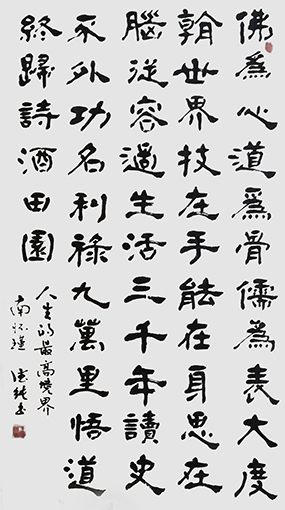 佛為心道爲骨儒為表大度
看世界技在手能在身思在
腦從容過生活三千年讀史
不外功名利祿九萬里悟道
終歸詩酒田園
人生的最高境界
南怀瑾